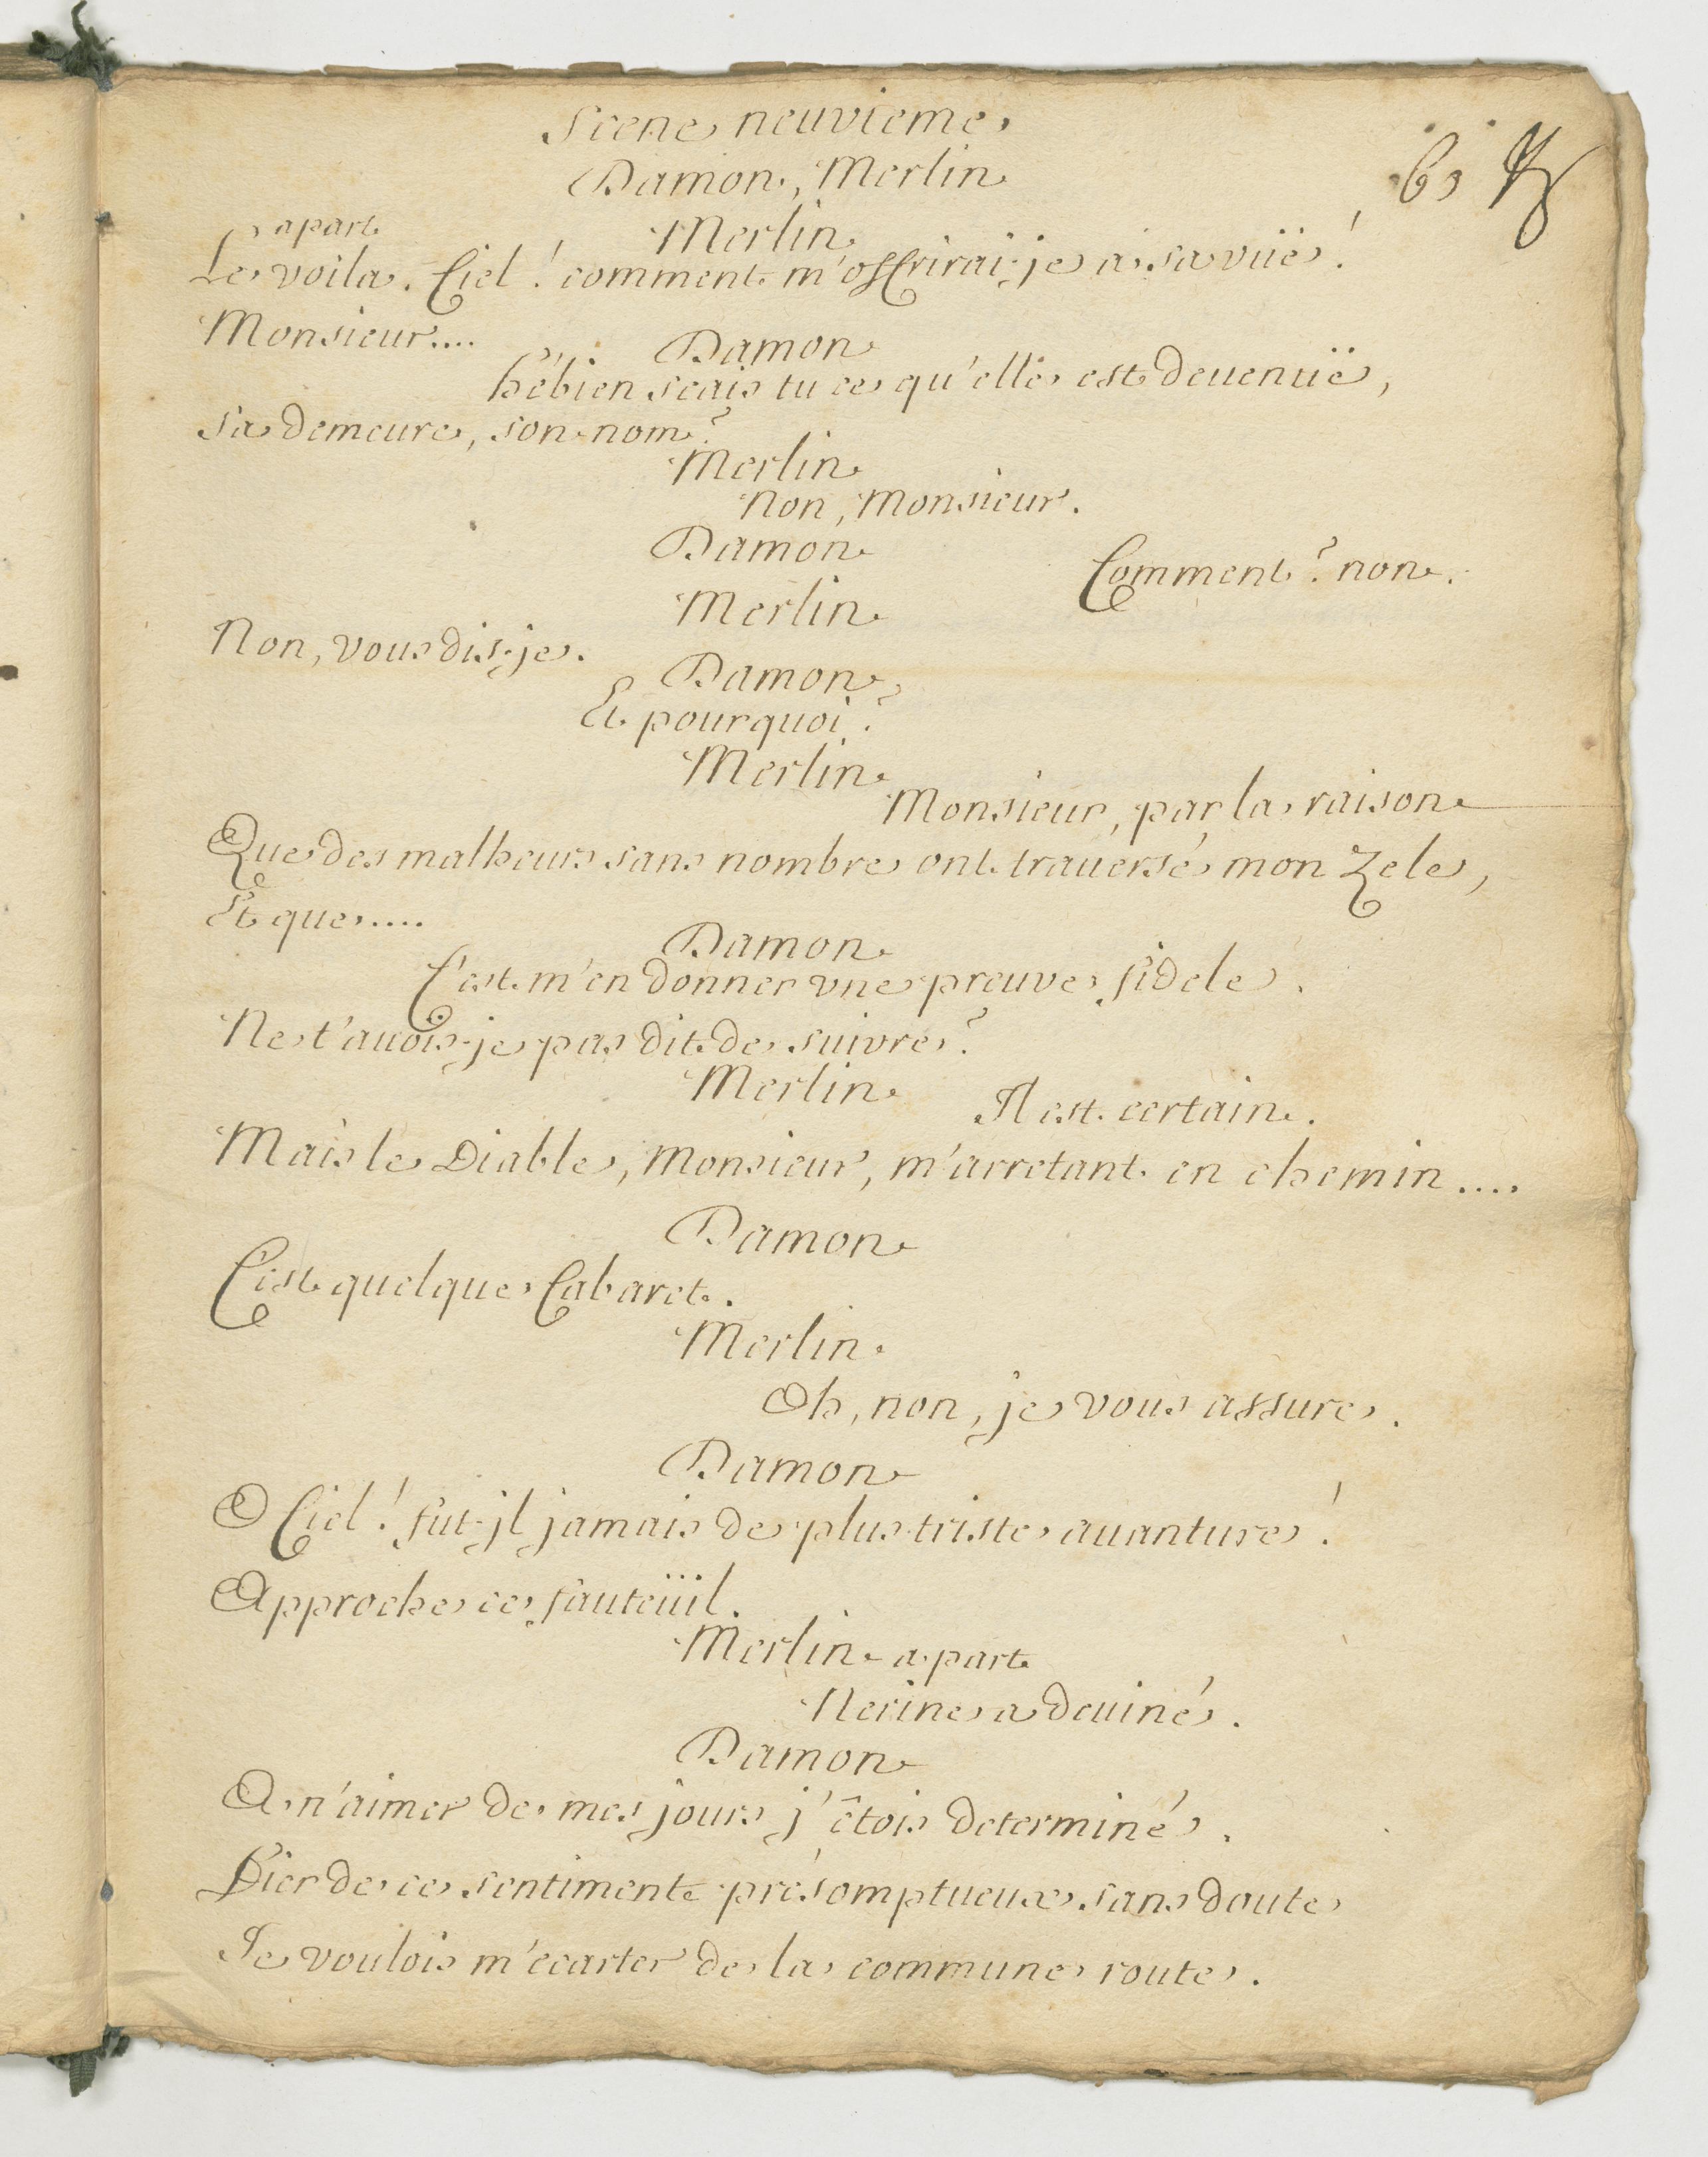 Scene neuvieme
Damon, Merlin
Merlin
apart
Le voila. Ciel! comment m'offrirai-je a sa vüe!
Monsieur....
Damon
hébien scais tu ce qu'elle est deuenüe,
Sa demeure, son nom?
Merlin
Non, Monsieur.
Damon
Comment? non.
Merlin
Non, vous dis-je.
Damon
Et pourquoi?
Merlin
Monsieur, par la raison
Que des malheurs sans nombre ont trauersé mon Zele,
Et que....
Damon
C'est m'en donner vne preuve fidele.
Ne t'auois-je pas dit de suivre?
Merlin
Il est certain.
Mais le Diable, Monsieur, m'arretant en chemin....
Damon
C'est quelque Cabaret.
Merlin.
Oh, non, je vous assure.
Damon
O Ciel! fut-jl jamais de plus triste auanture!
Approche ce fauteüil.
Merlin a part
Nerine a deuiné.
Damon
A n'aimer de mes jours j'êtois determiné.
Fier de ce sentiment présomptueux sans doute
Je voulois m'ecarter de la commune route.